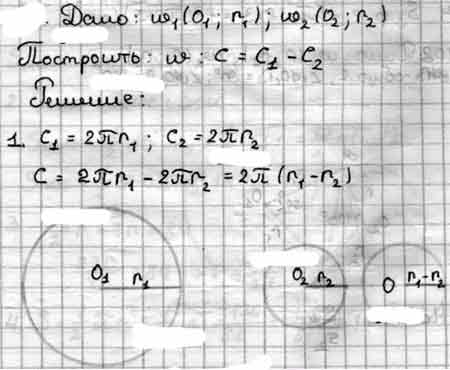 . Дано: w₁(O₁; r₁); w₂(O₂; r₂)
Построить: w: C = C₁ - C₂
Решение:
1. C₁ = 2πr₁; C₂ = 2πr₂
C = 2πr₁ - 2πr₂ = 2π(r₁-r₂)
O₁ r₁ O₂ r₂ O r₁-r₂